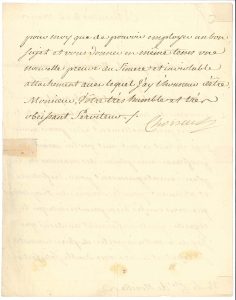 pour moy que de pouvoir employer un bon
sujet et vous donner en même tems une
nouvelle preuve du sincere et inviolable
attachement avec lequel j'ay l'honneur d'être,
Monsieur, Votre très humble et très
obéissant Serviteur /.